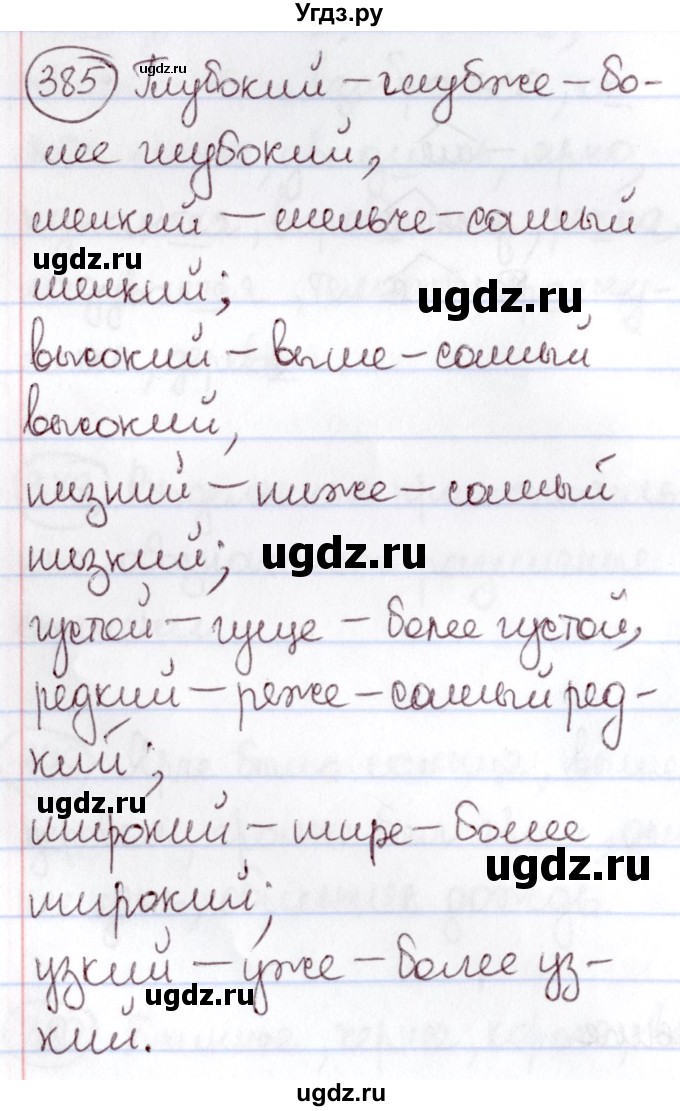 Угдз.ру
385 Глубокий – глубже – бо-
ugdz.ru
лее глубокий,
мелкий – мельче – самый
ugdz.ru
мелкий;
ugdz.ru
высокий – выше – самый
высокий,
низкий – ниже – самый
низкий;
ugdz.ru
густой – гуще – более густой,
редкий – реже – самый ред-
кий;
ugdz.ru
широкий – шире – более
ugdz.ru
широкий;
узкий – у́же – более уз-
ugdz.ru
кий.
ugdz.ru